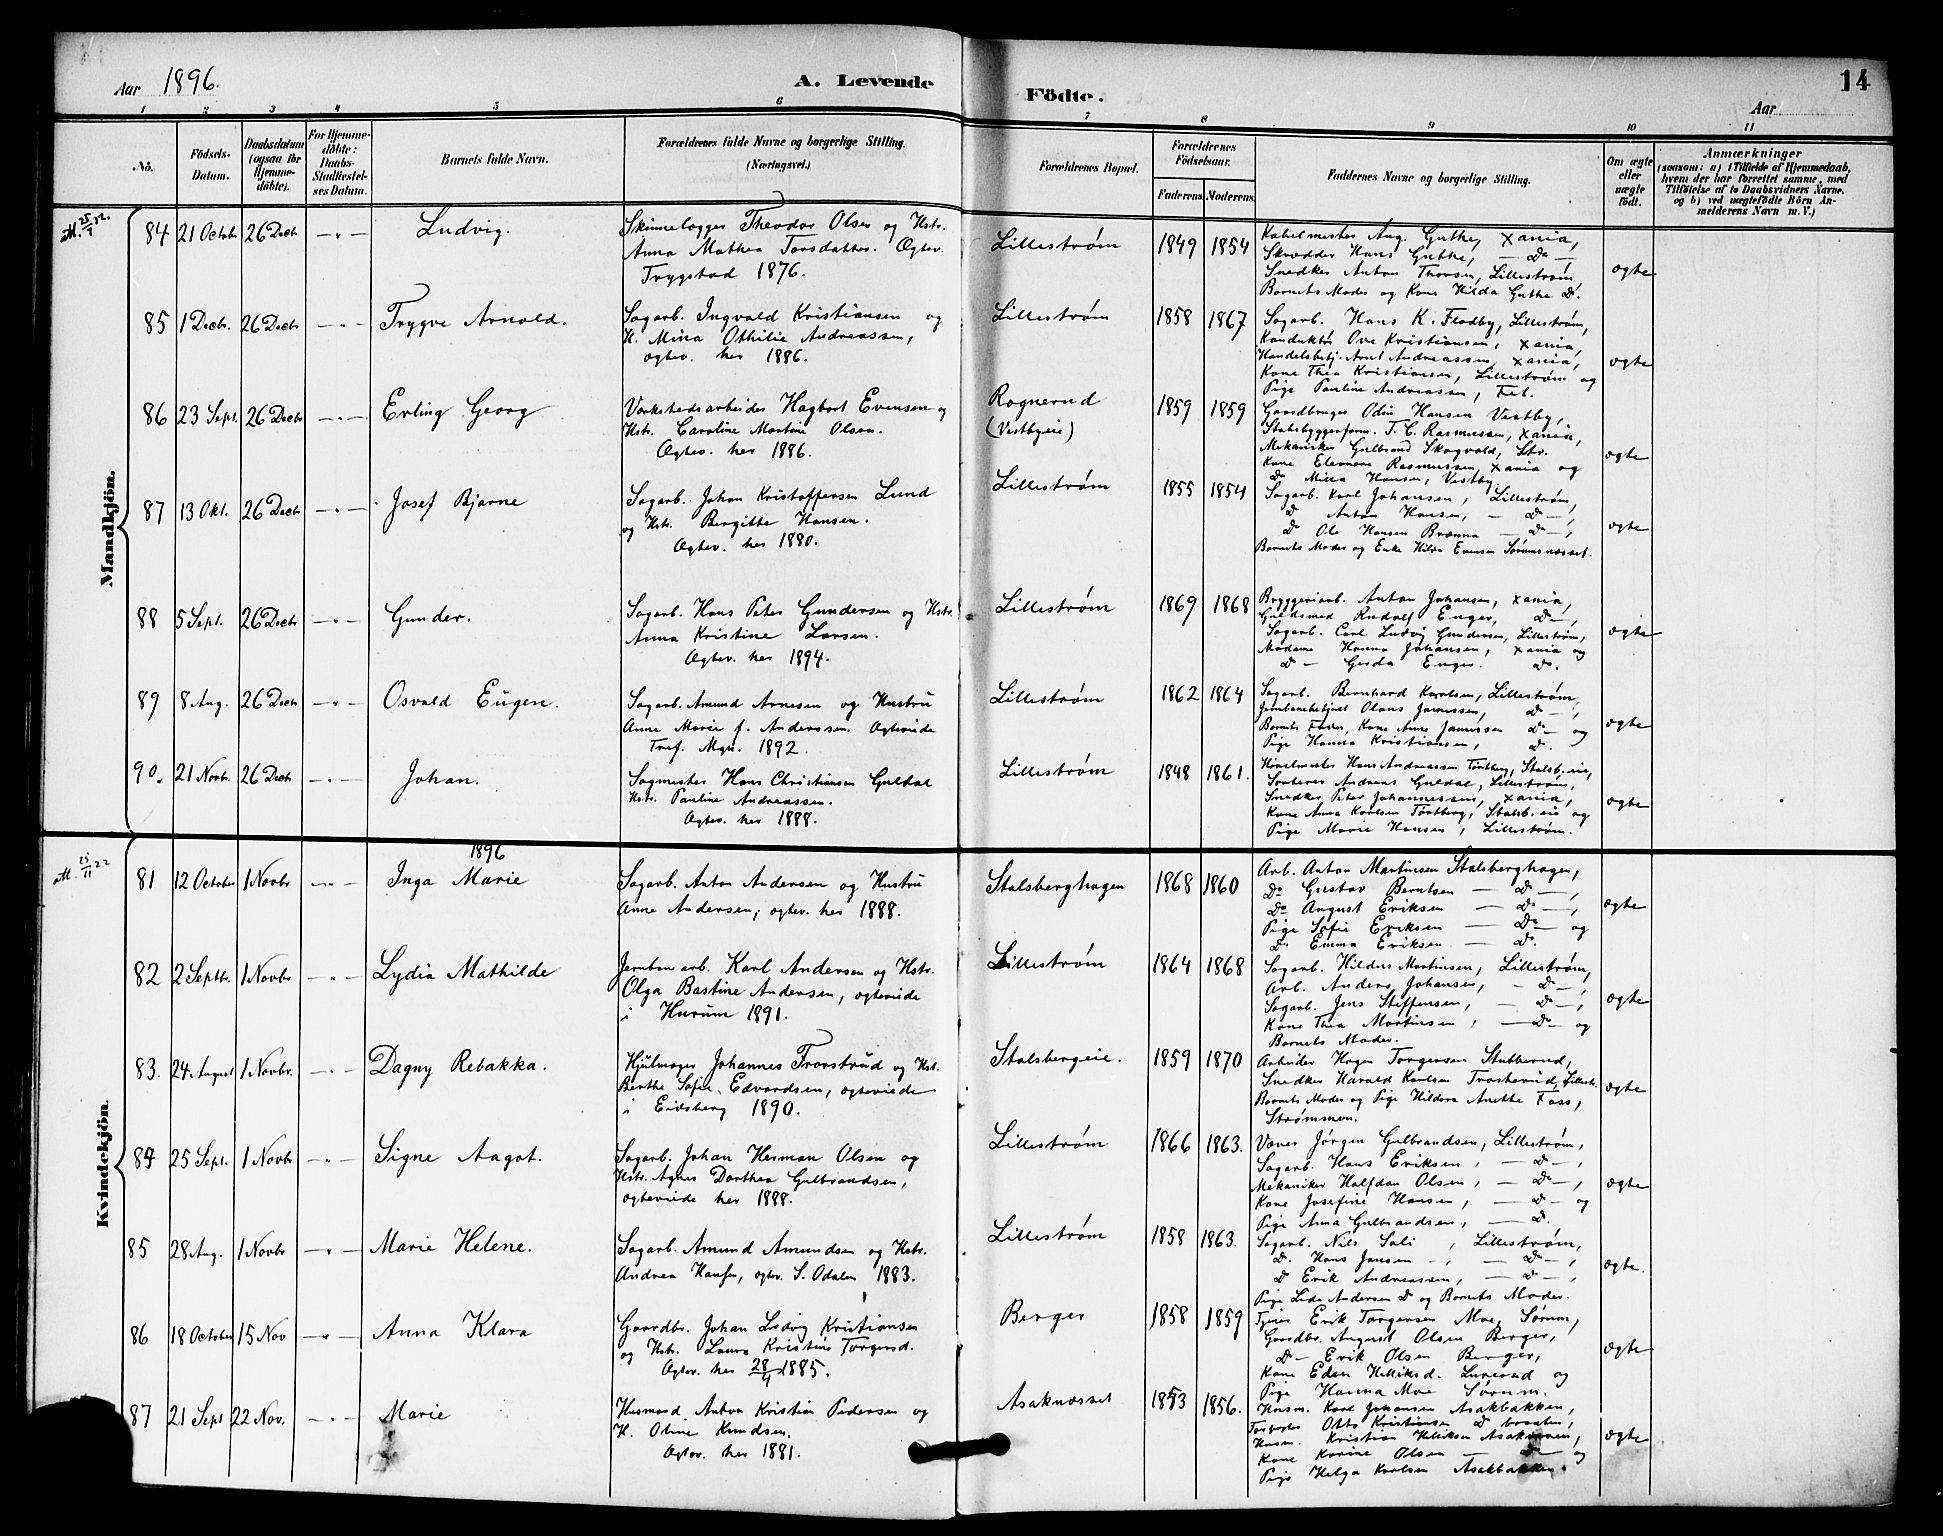 Aar 1896.
A. Levende
Födte.
Aar
14
1 2 3 4 5 6 7 8 9 10 11
No.
Födsels-Datum.
Daabsdatum (ogsaa for Hjemme-döbte).
For Hjemme-döbte: Daabs-Stadfæstel-ses Datum.
Barnets fulde Navn.
Forældrenes fulde Navne og borgerlige Stilling. (Næringsvei.)
Forældrenes Bopæl.
Forældrenes Födselsaar.
Faderens Moderens
Faddernes Navne og borgerlige Stilling.
Om ægte eller uægte födt.
Anmærkninger
(saasom: a) i Tilfælde af Hjemmedaab,
hvem der har forrettet samme, med
Tilföielse af to Daabsvidners Navne,
og b) ved uægtefödte Börn An-
melderens Navn m. V.)
Mandkjön.
84 21 Octobr 26 Decb — " — Ludvig.
Theodor Olsen og Hstr.
Anna Mathea Torsdatter. Ægtev.
Trygstad 1876.
Lillestrøm 1849 1854
Kabelmester Aug. Guthe, Xania,
Skrædder Hans Guthe, — Do —
Snedker Anton Thorsen, Lillestrøm
Barnets Moder og Kone Hilda Guthe Do.
ægte
85 1 Decbr. 26 Decb — " — Trygve Arnold.
Sagarb. Ingvald Kristiansen og
H. Mina Othilie Andreassen,
ægtev. her 1886.
Lillestrøm 1858 1867
Sagarb. Hans K. Flodby, Lillestrøm,
Konduktør Ove Kristiansen, Xania,
Handelsbetj. Arnt Andreassen, Xania,
Kone Thea Kristiansen, Lillestrøm og
Pige Pauline Andreassen, Fet.
ægte
86 23 Sept. 26 Decb — " — Erling Georg
Værkstedsarbeider Hagbart Evensen og
Hstr. Caroline Martine Olsen.
Ægtev. her 1886.
Rognerud
(Vestbyeie)
1859 1859
Gaardbruger Odin Hansen Vestby,
T. C. Rasmussen, Xania,
Mekaniker Gulbrand Skogvold, Str.
Kone Eleonore Rasmussen, Xania og
Do Milla Hansen, Vestby.
ægte
87 13 Okt. 26 Decb — " — Josef Bjarne
Sagarb. Johan Kristoffersen Lund
og Hstr. Bergitte Hansen.
Ægtev. her 1880.
Lillestrøm 1855 1854
Sagarb. Karl Johansen, Lillestrøm,
Do Anton Hansen, — Do —,
Do Ole Hansen Brænna — Do —,
Barnets Moder og Enke Hilda Evensen Sørumsnæsset.
ægte
88 5 Sept. 26 Decb — " — Gunder.
Sagarb. Hans Peter Gundersen og Hstr.
Anna Kristine Larsen.
Ægtev. her 1894.
Lillestrøm 1869 1868
Bryggeriarb. Anton Johansen, Xania,
Guldsmed Rudolf Enger, Do —,
Sagarb. Carl Ludvig Gundersen, Lillestrøm,
Madame Hanna Johansen, Xania og
Do — Gerda Enger. Do.
ægte
89 8 Aug. 26 Decb — " — Osvald Eugen.
Sagarb. Amund Arnesen og Hustru
Anne Marie f. Anderssen. Ægteviede
Tref. Mgh. 1892.
Lillestrøm 1862 1864
Sagarb. Bernhard Karlsen, Lillestrøm,
Jernbanebetjent Olaus Jamessen, Do —,
Barnets Fader, Kone Anne Jamessen Do — og
Pige Hanna Kristiansen, Do.
ægte
90. 21 Novbr. 26 Decb — " — Johan.
Sagmester Hans Christiansen Guldal
Hstr. Pauline Andreassen.
Ægtev. her 1888.
Lillestrøm 1848 1861.
Høvelmester Hans Andreassen Tortberg, Stalsb. eie,
Sorterer Andreas Guldal, Lillestrøm,
Snedker Peter Johannessen, Xania,
Kone Anna Karlsen Tortberg, Stalsb. eie og
Pige Marie Hansen, Lillestrøm.
ægte
Kvindekjön.
1896
81 12 October 1 Novbr — " — Inga Marie
Sagarb. Anton Andersen og Hustru
Anne Andersen, ægtev. her 1888.
Stalsberghagen 1868 1860
Arb. Anton Martinsen Stalsberghagen,
Do Gustav Berntsen — Do —,
Do August Eriksen — Do —,
Pige Sofie Eriksen — Do — og
Do Emma Eriksen — Do.
ægte
82 2 Septbr. 1 Novbr — " — Lydia Mathilde
Jernbanearb. Karl Andersen og Hstr.
Olga Bastine Andersen, ægteviede
i Hurum 1891.
Lillestrøm 1864 1868
Sagarb. Hildus Martinsen, Lillestrøm,
Arb. Anders Johansen, — Do —,
Sagarb. Jens Steffensen, — Do —,
Kone Thea Martinsen, — Do — og
Barnets Moder.
ægte
83. 24 August 1 Novbr. — " — Dagny Rebakka.
Hjulmager Johannes Trorstrud og Hst.
Berthe Sofie Edvardsen, ægteviede
i Eidsberg 1890.
Stalsbergeie. 1859 1870
Arbeider Hagen Torgersen Stubberud,
Snedker Harald Karlsen Trosterud, Lillestr.
Barnets Moder og Pige Hildora Anette Foss,
Strømmen.
ægte
84 25 Sept. 1 Novbr — " — Signe Aagot.
Sagarb. Johan Herman Olsen og
Hstr. Agnes Dorthea Gulbrandsen,
ægteviede her 1888.
Lillestrøm 1866 1863.
Væver Jørgen Gulbrandsen, Lillestrøm,
Sagarb. Hans Eriksen, — Do —,
Mekaniker Halfdan Olsen, — Do —,
Kone Josefine Hansen, — Do — og
Pige Anna Gulbrandsen, — Do.
ægte
85 28 Aug. 1 Novbr — " — Marie Helene.
Sagarb. Amund Amundsen og Hstr.
Andrea Hansen, ægtev. S. Odalen 1883.
Lillestrøm 1858 1863.
Sagarb. Nils Sali, Lillestrøm,
Do. Hans Jensen —, — Do —,
Do Erik Andreassen, — Do —,
Pige Lida Andersen Do og Barnets Moder.
ægte.
86 18 October 15 Nov — " — Anna Klara
Gaardbr. Johan Ludvig Kristiansen
og Hstr. Laura Kristine Torgersd.
Ægtev. her 28/4 1885.
Berger 1858 1859
Erik Torgersen Moe, Sørum,
Gaardbr. August Olsen Berger,
Do — Erik Olsen Berger,
Kone Eden Lunerud og
Pige Hanna Moe Sørum.
ægte
87 21 Sept 22 Nov. — " — Marie
Husmand Anton Kristian Pedersen og
H. Oline Knudsen.
Ægtev. her 1881.
Asaknæsset 1853 1856.
Husm. Karl Johansen Asakbakken,
Otto Kristiansen Do braaten,
Husm. Kristian
Kone Karine Olsen — Do — og
Pige Helga Karlsen Asakbakken.
ægte